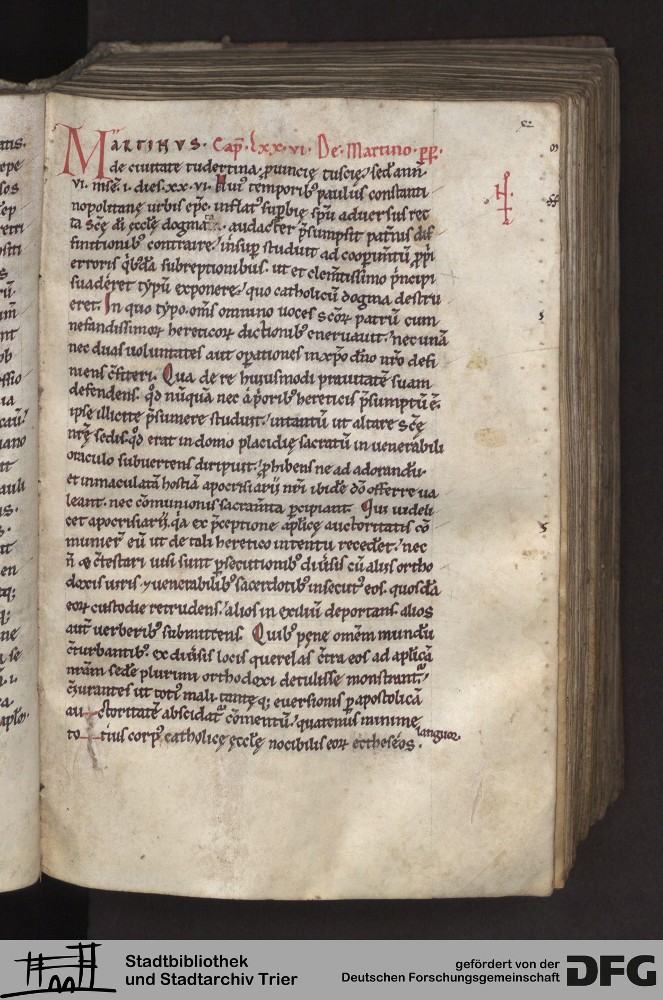 MARTINVS. Cap̄. lxx.vi. De. Martino. pp.
de ciuitate tudertina, ꝓuincię tuscię, sed̄ ann̄
vi. mse. i. dies. xx.vi. Huiꝰ temporibꝰ paulus constanti
nopolitanę urbis ep̄c. inflatꝰ suꝑbię sp̄u aduersus rec
ta scē di ęcclę dogma audacter p̄sumpsit patrū dif
finitionibꝰ contraire, insuꝑ studuit ad cooꝑimtū ꝓpri
erroris qb'dā subreptionibus. ut et clemtissimo p̄ncipi
suaderet typū exponere, quo catholicū dogma destru
eret. In quo typo. om̄s omnino uoces scōꝝ patrū cum
nefandissimoꝝ hereticoꝝ dictionibꝰ eneruauit, nec unā
nec duas uoluntates aut oꝑationes in xp̄o dn̄o nr̄o defi
niens c̄fiteri. Qua de re huiusmodi prauitatē suam
defendens. qd̄ nūquā nec a p'oribꝰ hereticis p̄sumptū ē.
ipse illicite p̄sumere studuit, intantū ut altare scę
nr̄ę sedis. qd̄ erat in domo placidię sacratū in uenerabili
oraculo subuertens diripuit, ꝓhibens ne ad adorandū
et inmaculatā hostiā apocrisiarij nr̄i ibidē dō offerre ua
leant. nec cōmunionis sacram̄ta ꝑcipiant. Qui uideli
cet apocrisiarij. qa ex p̄ceptione aplicę auctoritatis cō
munier eū ut de tali heretico intentu recedet, nec
n̄ & c̄testari uisi sunt ꝑsecutionibꝰ diūsis cū alijs ortho
doxis uiris. & uenerabilibꝰ sacerdotibꝰ insecutꝰ eos. quosdā
eoꝝ custodie retrudens, alios in exiliū deportans. alios
aut̄ uerberibꝰ submittens. Quibꝰ pęne omēm mundū
c̄turbantibꝰ. ex diūsis locis querelas c̄tra eos ad aplicā
nr̄am sedē plurimi orthodoxi detulisse monstrant,
c̄iurantes ut totiꝰ mali. tantę q; euersionis ꝑ apostolicā
auctoritatē abscidat̄ cōmentū, quatenus minime
totius corpꝰ catholicę ęcclę nocibilis eoꝝ ecthesēos. languor
Stadtbibliothek
und Stadtarchiv Trier
gefördert von der
Deutschen Forschungsgemeinschaft
DFG